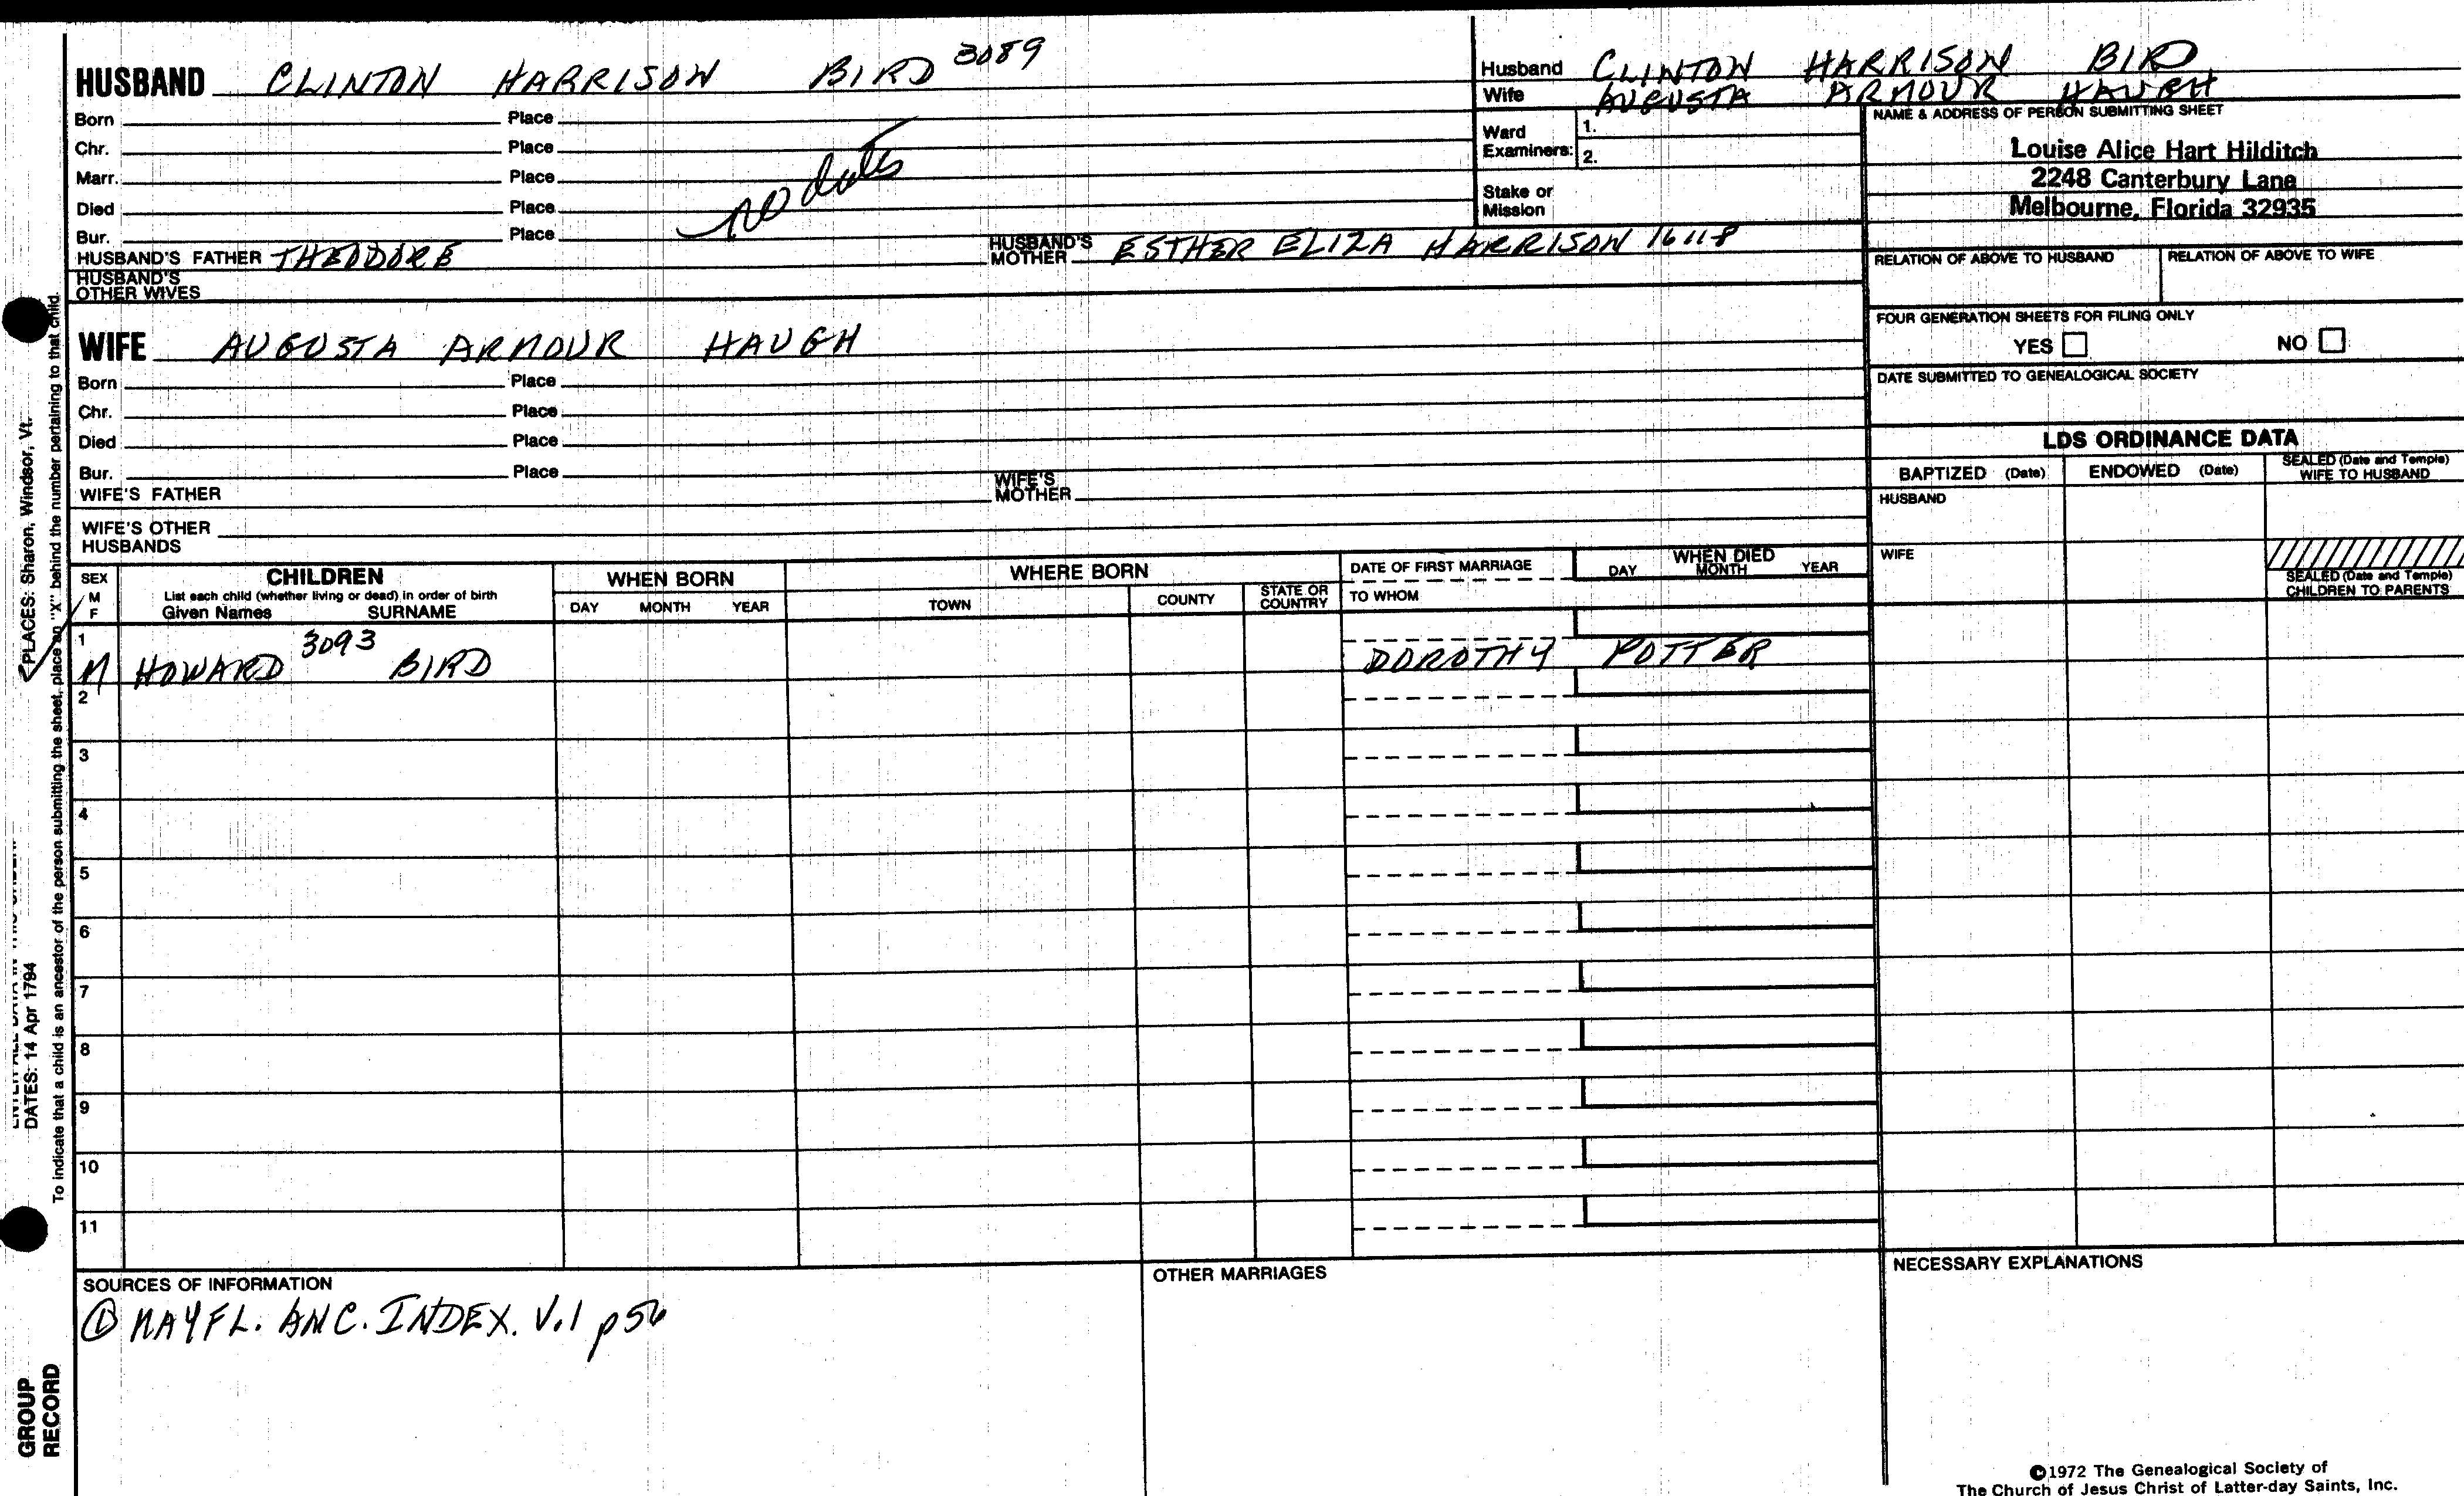 HUSBAND CLINTON HARRISON BIRD 3089
Born Place
Chr. Place
Marr. Place
Died Place
Bur. Place
no dates
HUSBAND'S FATHER THEODORE HUSBAND'S MOTHER ESTHER ELIZA HARRISON 16118
HUSBAND'S OTHER WIVES
Husband CLINTON HARRISON BIRD
Wife AUGUSTA ARMOUR HAUGH
Ward Examiners: 1.
2.
Stake or Mission
NAME & ADDRESS OF PERSON SUBMITTING SHEET
Louise Alice Hart Hilditch
2248 Canterbury Lane
Melbourne, Florida 32935
RELATION OF ABOVE TO HUSBAND RELATION OF ABOVE TO WIFE
FOUR GENERATION SHEETS FOR FILING ONLY
YES NO
DATE SUBMITTED TO GENEALOGICAL SOCIETY
WIFE AUGUSTA ARMOUR HAUGH
Born Place
Chr. Place
Died Place
Bur. Place
WIFE'S FATHER WIFE'S MOTHER
WIFE'S OTHER HUSBANDS
LDS ORDINANCE DATA
BAPTIZED (Date) ENDOWED (Date) SEALED (Date and Temple) WIFE TO HUSBAND
HUSBAND
WIFE
SEALED (Date and Temple) CHILDREN TO PARENTS
SEX M F
CHILDREN
List each child (whether living or dead) in order of birth
Given Names SURNAME
WHEN BORN
DAY MONTH YEAR
WHERE BORN
TOWN COUNTY STATE OR COUNTRY
DATE OF FIRST MARRIAGE
TO WHOM
WHEN DIED
DAY MONTH YEAR
1 M HOWARD 3093 BIRD DOROTHY POTTER
2
3
4
5
6
7
8
9
10
11
SOURCES OF INFORMATION
① MAYFL. ANC. INDEX. V.1 p56
OTHER MARRIAGES
NECESSARY EXPLANATIONS
©1972 The Genealogical Society of
The Church of Jesus Christ of Latter-day Saints, Inc.
PLACES: Sharon, Windsor, Vt.
DATES: 14 Apr 1794
To indicate that a child is an ancestor of the person submitting the sheet, place an "X" behind the number pertaining to that child.
GROUP
RECORD